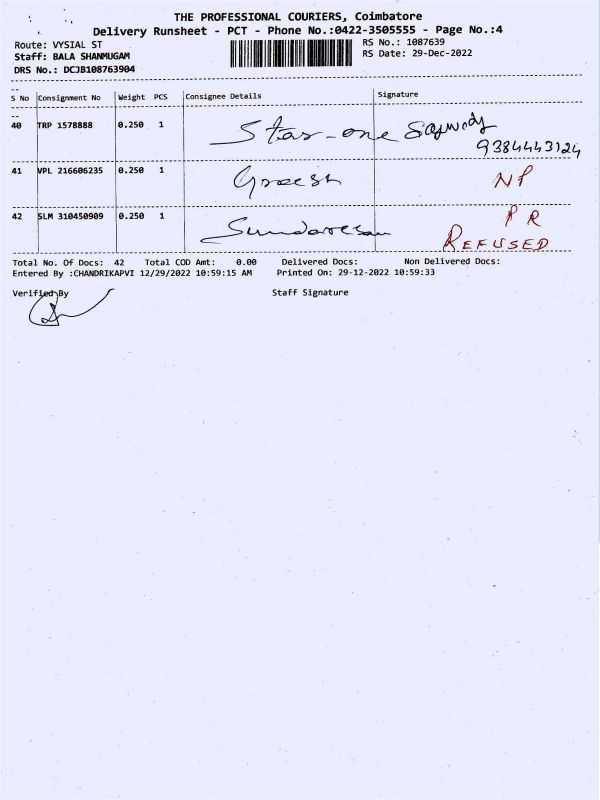 THE PROFESSIONAL COURIERS, Coimbatore
Delivery Runsheet - PCT - Phone No.:0422-3505555 - Page No.:4
Route: VYSIAL ST
RS No.: 1087639
Staff: BALA SHANMUGAM
RS Date: 29-Dec-2022
DRS No.: DCJB108763904
S No Consignment No Weight PCS Consignee Details Signature
40 TRP 1578888 0.250 1 Star-one
9384443124
41 VPL 216606235 0.250 1 NP
42 SLM 310450909 0.250 1 Sundaresan PR
REFUSED
Total No. Of Docs: 42 Total COD Amt: 0.00 Delivered Docs: Non Delivered Docs:
Entered By :CHANDRIKAPVI 12/29/2022 10:59:15 AM Printed On: 29-12-2022 10:59:33
Verified By Staff Signature